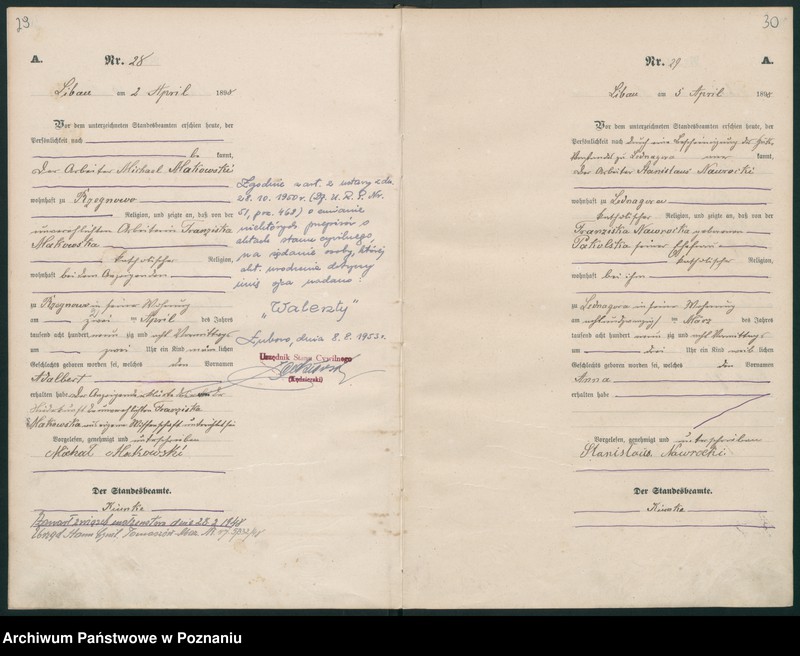 29
A.
Nr. 28
Libau am 2 April 1898
Vor dem unterzeichneten Standesbeamten erschien heute, der
Persönlichkeit nach
be kannt,
Der Arbeiter Michael Makowski
wohnhaft zu Rzegnowo
Religion, und zeigte an, daß von der
unverehelichten Arbeiterin Franziska
Makowska
katholischer Religion,
wohnhaft bei dem Anzeigenden
zu Rzegnowo in seiner Wohnung
am zwei ten April des Jahres
tausend acht hundert neunzig und acht Vormittags
um zwei Uhr ein Kind männlichen
Geschlechts geboren worden sei, welches den Vornamen
Adalbert
erhalten habe. Der Anzeigende
Niederkunft der unverehelichten Franziska
Makowska aus eigener Wissenschaft unterrichtet sei
Vorgelesen, genehmigt und unterschrieben
Michał Makowski
Der Standesbeamte.
dnia 28.2.1948
Zgodnie z art. 2 ustawy z dn.
28.10.1950r. (Dz. U. R. P. Nr.
51, poz. 468) o zmianie
niektórych przepisów o
aktach stanu cywilnego,
na żądanie osoby, której
akt urodzenia dotyczy
imię ojca nadano:
"Walenty"
Łubowo, dnia 8.8.1953r.
Urzędnik Stanu Cywilnego
30
Nr. 29
A.
Libau am 5 April 1898
Vor dem unterzeichneten Standesbeamten erschien heute, der
Persönlichkeit nach durch eine Bescheinigung des
zu Lednagora kannt,
Der Arbeiter Stanislaus Nawrocki
wohnhaft zu Lednagora
katholischer Religion, und zeigte an, daß von der
Franziska Nawrocka geborenen
seiner Ehefrau
katholischer Religion,
wohnhaft bei ihm
zu Lednagora in seiner Wohnung
am achtundzwanzigsten März des Jahres
tausend acht hundert neunzig und acht Vormittags
um drei Uhr ein Kind weiblichen
Geschlechts geboren worden sei, welches den Vornamen
Anna
erhalten habe
Vorgelesen, genehmigt und unterschrieben
Stanislaus Nawrocki
Der Standesbeamte.
Archiwum Państwowe w Poznaniu